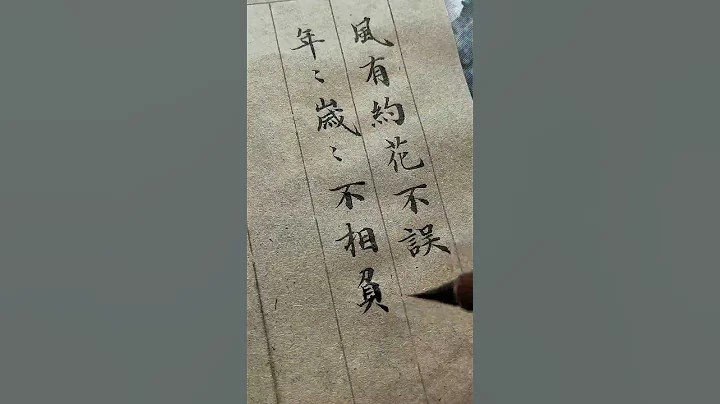 風有約花不誤
年〻歲〻不相負